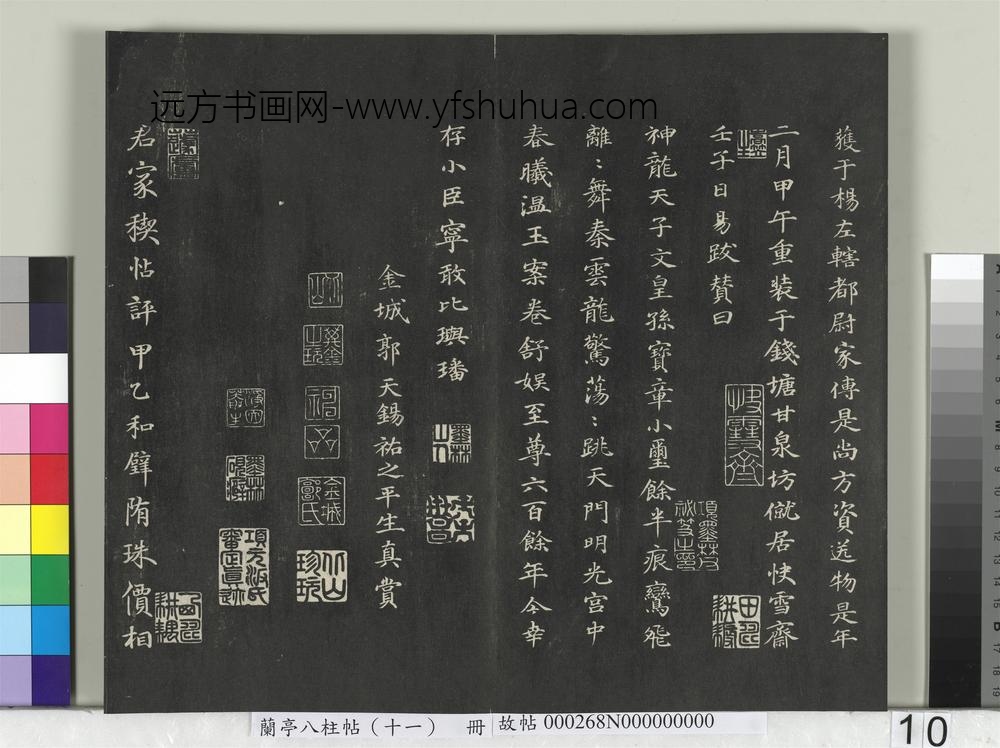 远方书画网-www.yfshuhua.com
獲于楊左轄都尉家傳是尚方資送物是年
二月甲午重裝于錢塘甘泉坊僦居快雪齋
壬子日易跋贊曰
神龍天子文皇孫寶章小璽餘半痕鸞飛
離〻舞秦雲龍驚蕩〻跳天門明光宮中
春曦温玉案卷舒娱至尊六百餘年今幸
存小臣寧敢比璵璠
金城郭天錫祐之平生真賞
君家稧帖評甲乙和璧隋珠價相
快雪齋
項墨林祕笈之印
墨林山人
金城郭氏
項元汴氏審定真迹
蘭亭八柱帖（十一） 冊
故帖 000268N000000000
10